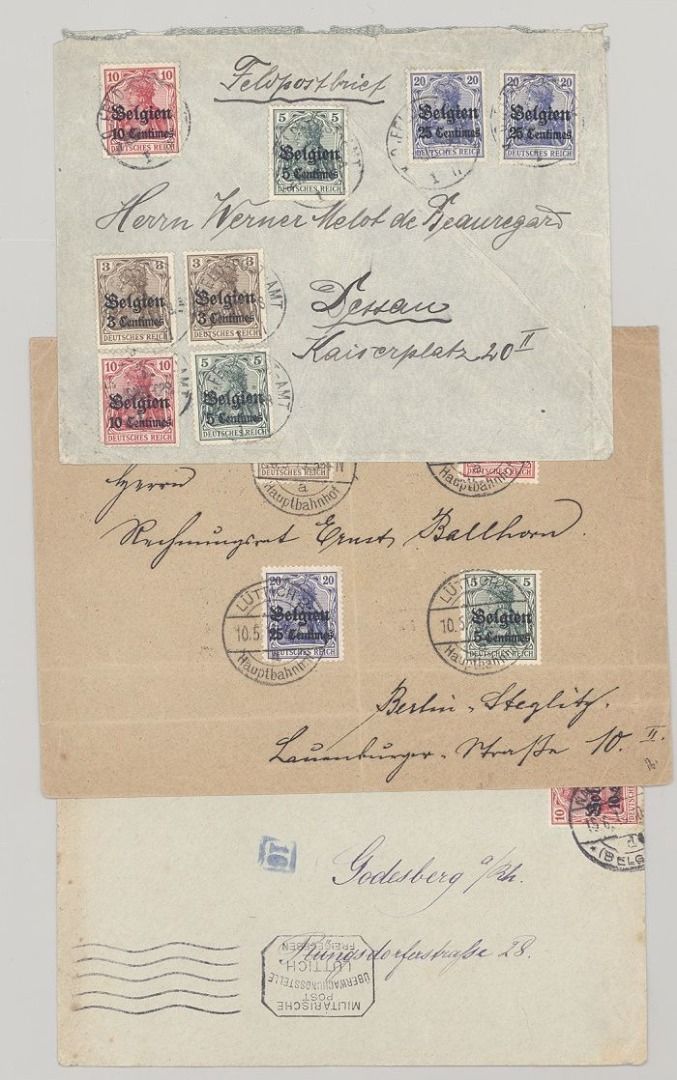 Feldpostbrief
10 10
Belgien
10 Centimes
DEUTSCHES REICH
5 5
Belgien
5 Centimes
DEUTSCHES REICH
20 20
Belgien
25 Centimes
DEUTSCHES REICH
20 20
Belgien
25 Centimes
DEUTSCHES REICH
Herrn Werner Melot de Beauregard
Dessau
Kaiserplatz 20 II
3 3
Belgien
3 Centimes
DEUTSCHES REICH
3 3
Belgien
3 Centimes
DEUTSCHES REICH
10 10
Belgien
10 Centimes
DEUTSCHES REICH
5 5
Belgien
5 Centimes
DEUTSCHES REICH
DEUTSCHES REICH
a
Hauptbahnhof
Hauptbahnhof
Herrn
Rechnungsrat Ernst Ballhorn.
LÜTTICH
10.5
Hauptbahnhof
20 20
Belgien
25 Centimes
DEUTSCHES REICH
LÜTTICH
10.5
Hauptbahnhof
5 5
Belgien
5 Centimes
DEUTSCHES REICH
Berlin-Steglitz.
Lauenburger-Straße 10. II.
10
DEUTSCHES REICH
Godesberg a/Rh.
Plüngsdorferstraße 28.
MILITÄRISCHE
ÜBERWACHUNGSSTELLE
POST
LÜTTICH.
FREIGEGEBEN